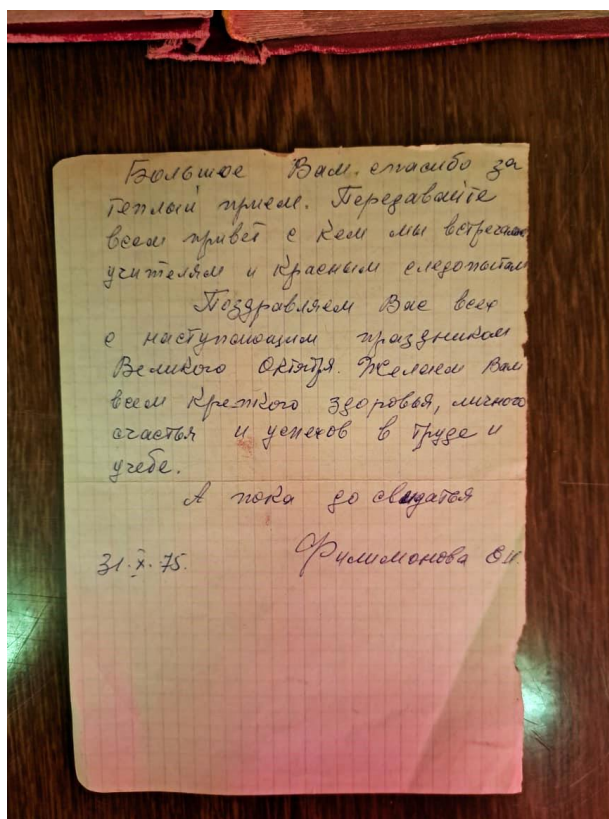 Большое Вам спасибо за
теплый прием. Передавайте
всем привет с кем мы встречались
учителям и красным следопытам
Поздравляем Вас всех
с наступающим праздником
Великого Октября. Желаем Вам
всем крепкого здоровья, личного
счастья и успехов в труде и
учебе.
А пока до свидатья
31.X.75. Филимонова